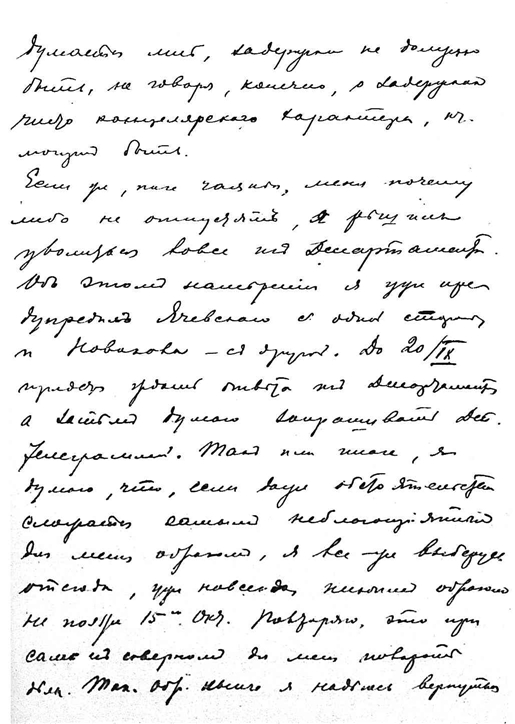 думается мнѣ, задержки не должно
быть, не говоря, конечно, о задержкѣ
чисто канцелярскаго характера, м.
можетъ быть.
Если же, паче чаянія, меня почему
либо не отпустятъ, я рѣшилъ
уволиться вовсе изъ Департамента.
Объ этомъ намѣреніи я уже пре
дупредилъ Ячевскаго съ одной стороны
и Новакова – съ другой. До 20/IX
буду ждать отвѣта изъ Департамента
а затѣмъ думаю запрашивать Деп.
телеграммой. Такъ или иначе, я
думаю, что, если даже обстоятельства
сложатся самымъ неблагопріятнымъ
для меня образомъ, я все-же выберусь
отсюда, уже навсегда, никоимъ образомъ
не позже 15го Окт. Повторяю, это при
самомъ скверномъ для меня поворотѣ
дѣла. Так. обр. нынѣ я надѣюсь вернуться